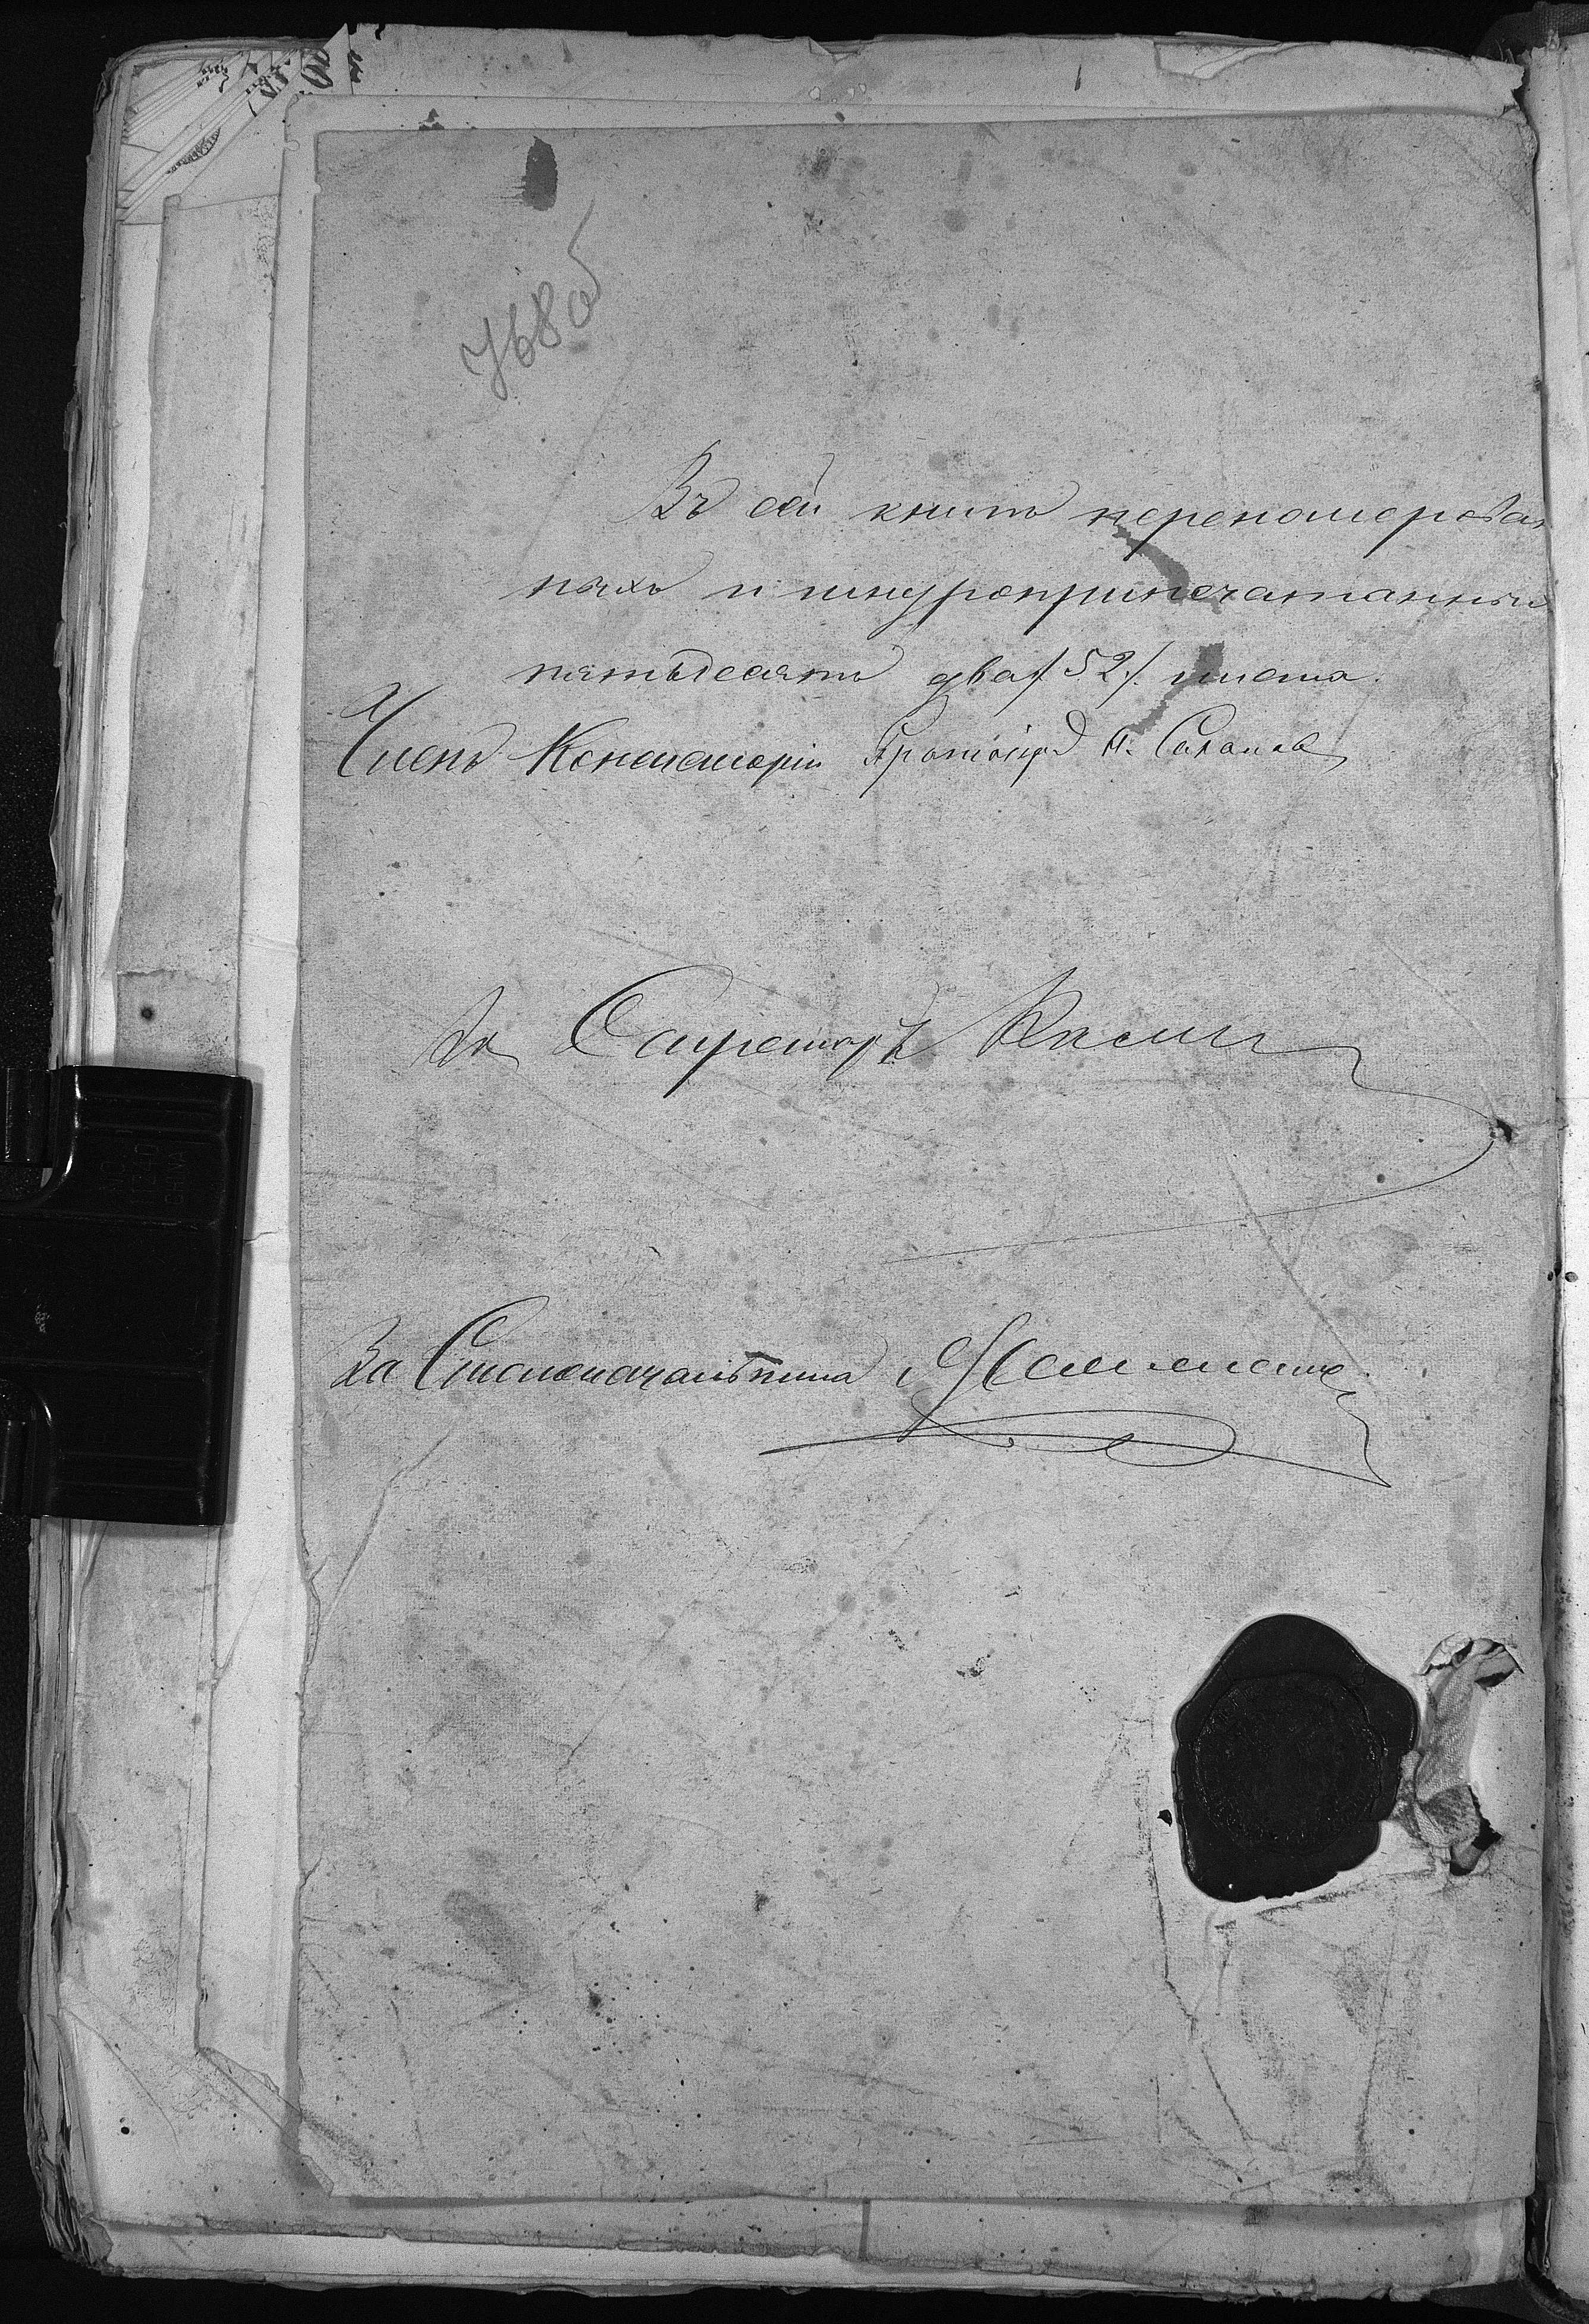 768 об
Въ сей книге переномерован
ныхъ и шнуроприпечатанныхъ
пятьдесятъ два /52/ листа.
Членъ Консисторіи Протоіерей А.
За Секретаря
За Столоначальника